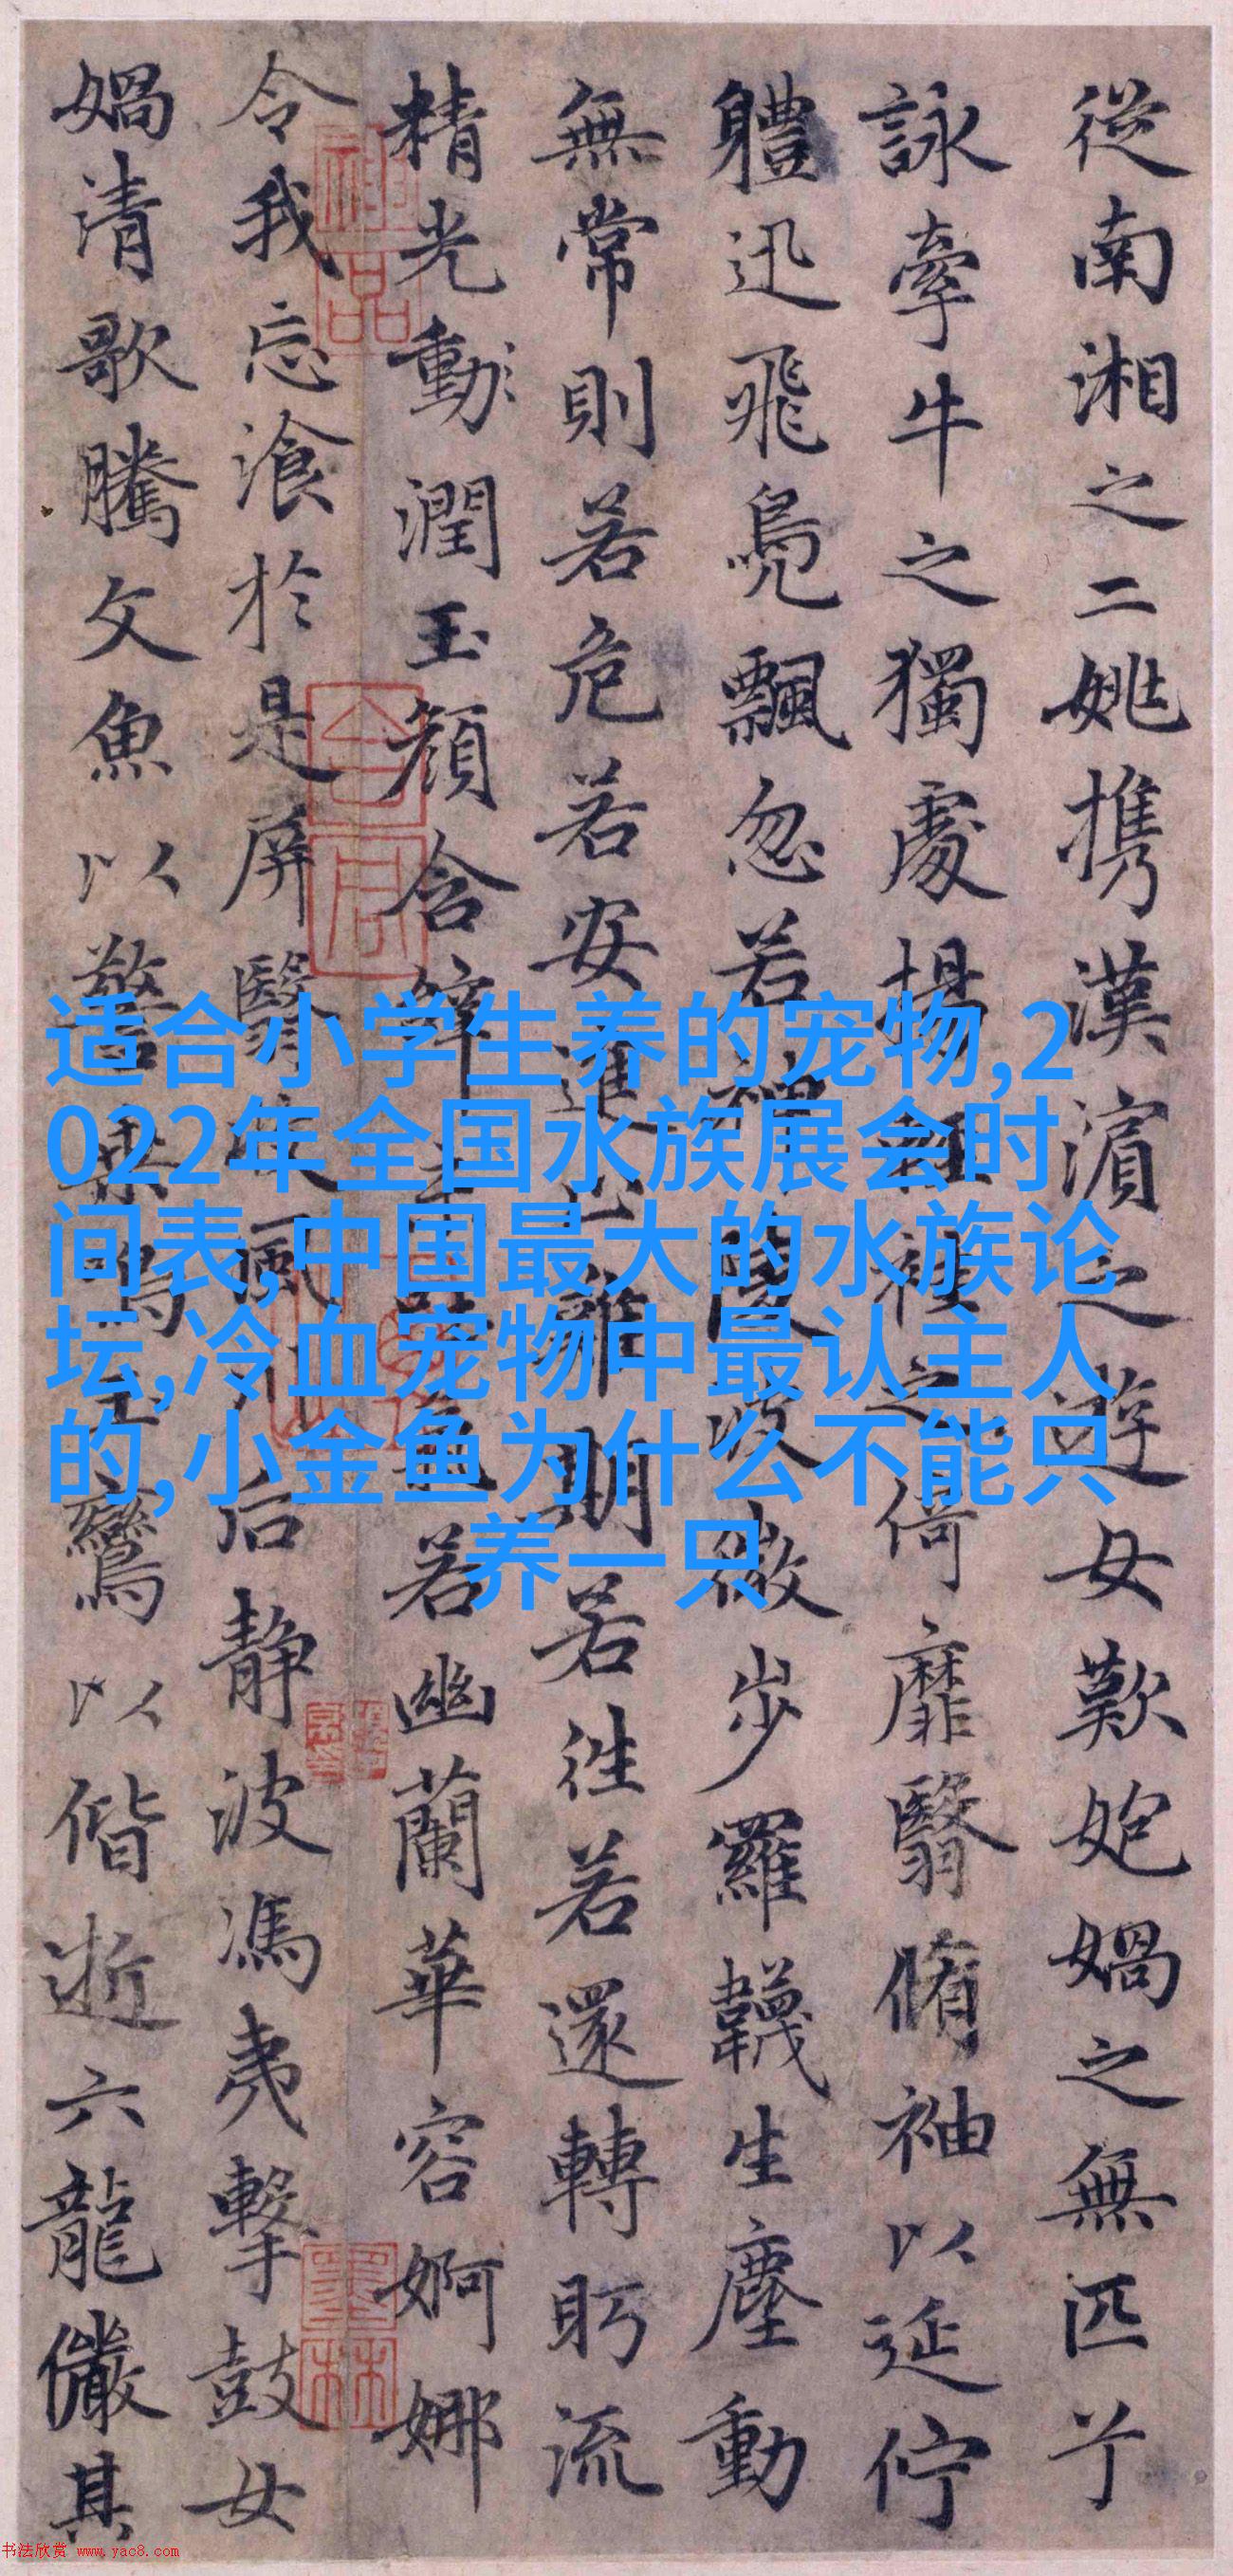 從南湘之二姚攜漢濱之遊女歎匏媧之無匹兮
詠牽牛之獨處揚輕袿之倚靡翳脩袖以延佇
軆迅飛鳧飄忽若神陵波微步羅韈生塵動
無常則若危若安進止難期若往若還轉眄流
精光動潤玉顏含辭未吐氣若幽蘭華容婀娜
令我忘飡於是屏翳收風川后靜波馮夷擊鼓女
媧清歌騰文魚以警乘鳴玉鸞以偕逝六龍儼其
适合小学生养的宠物,2
022年全国水族展会时
间表,中国最大的水族论
坛,冷血宠物中最认主人
的,小金鱼为什么不能只
养一只
书法欣赏 www.yac8.com